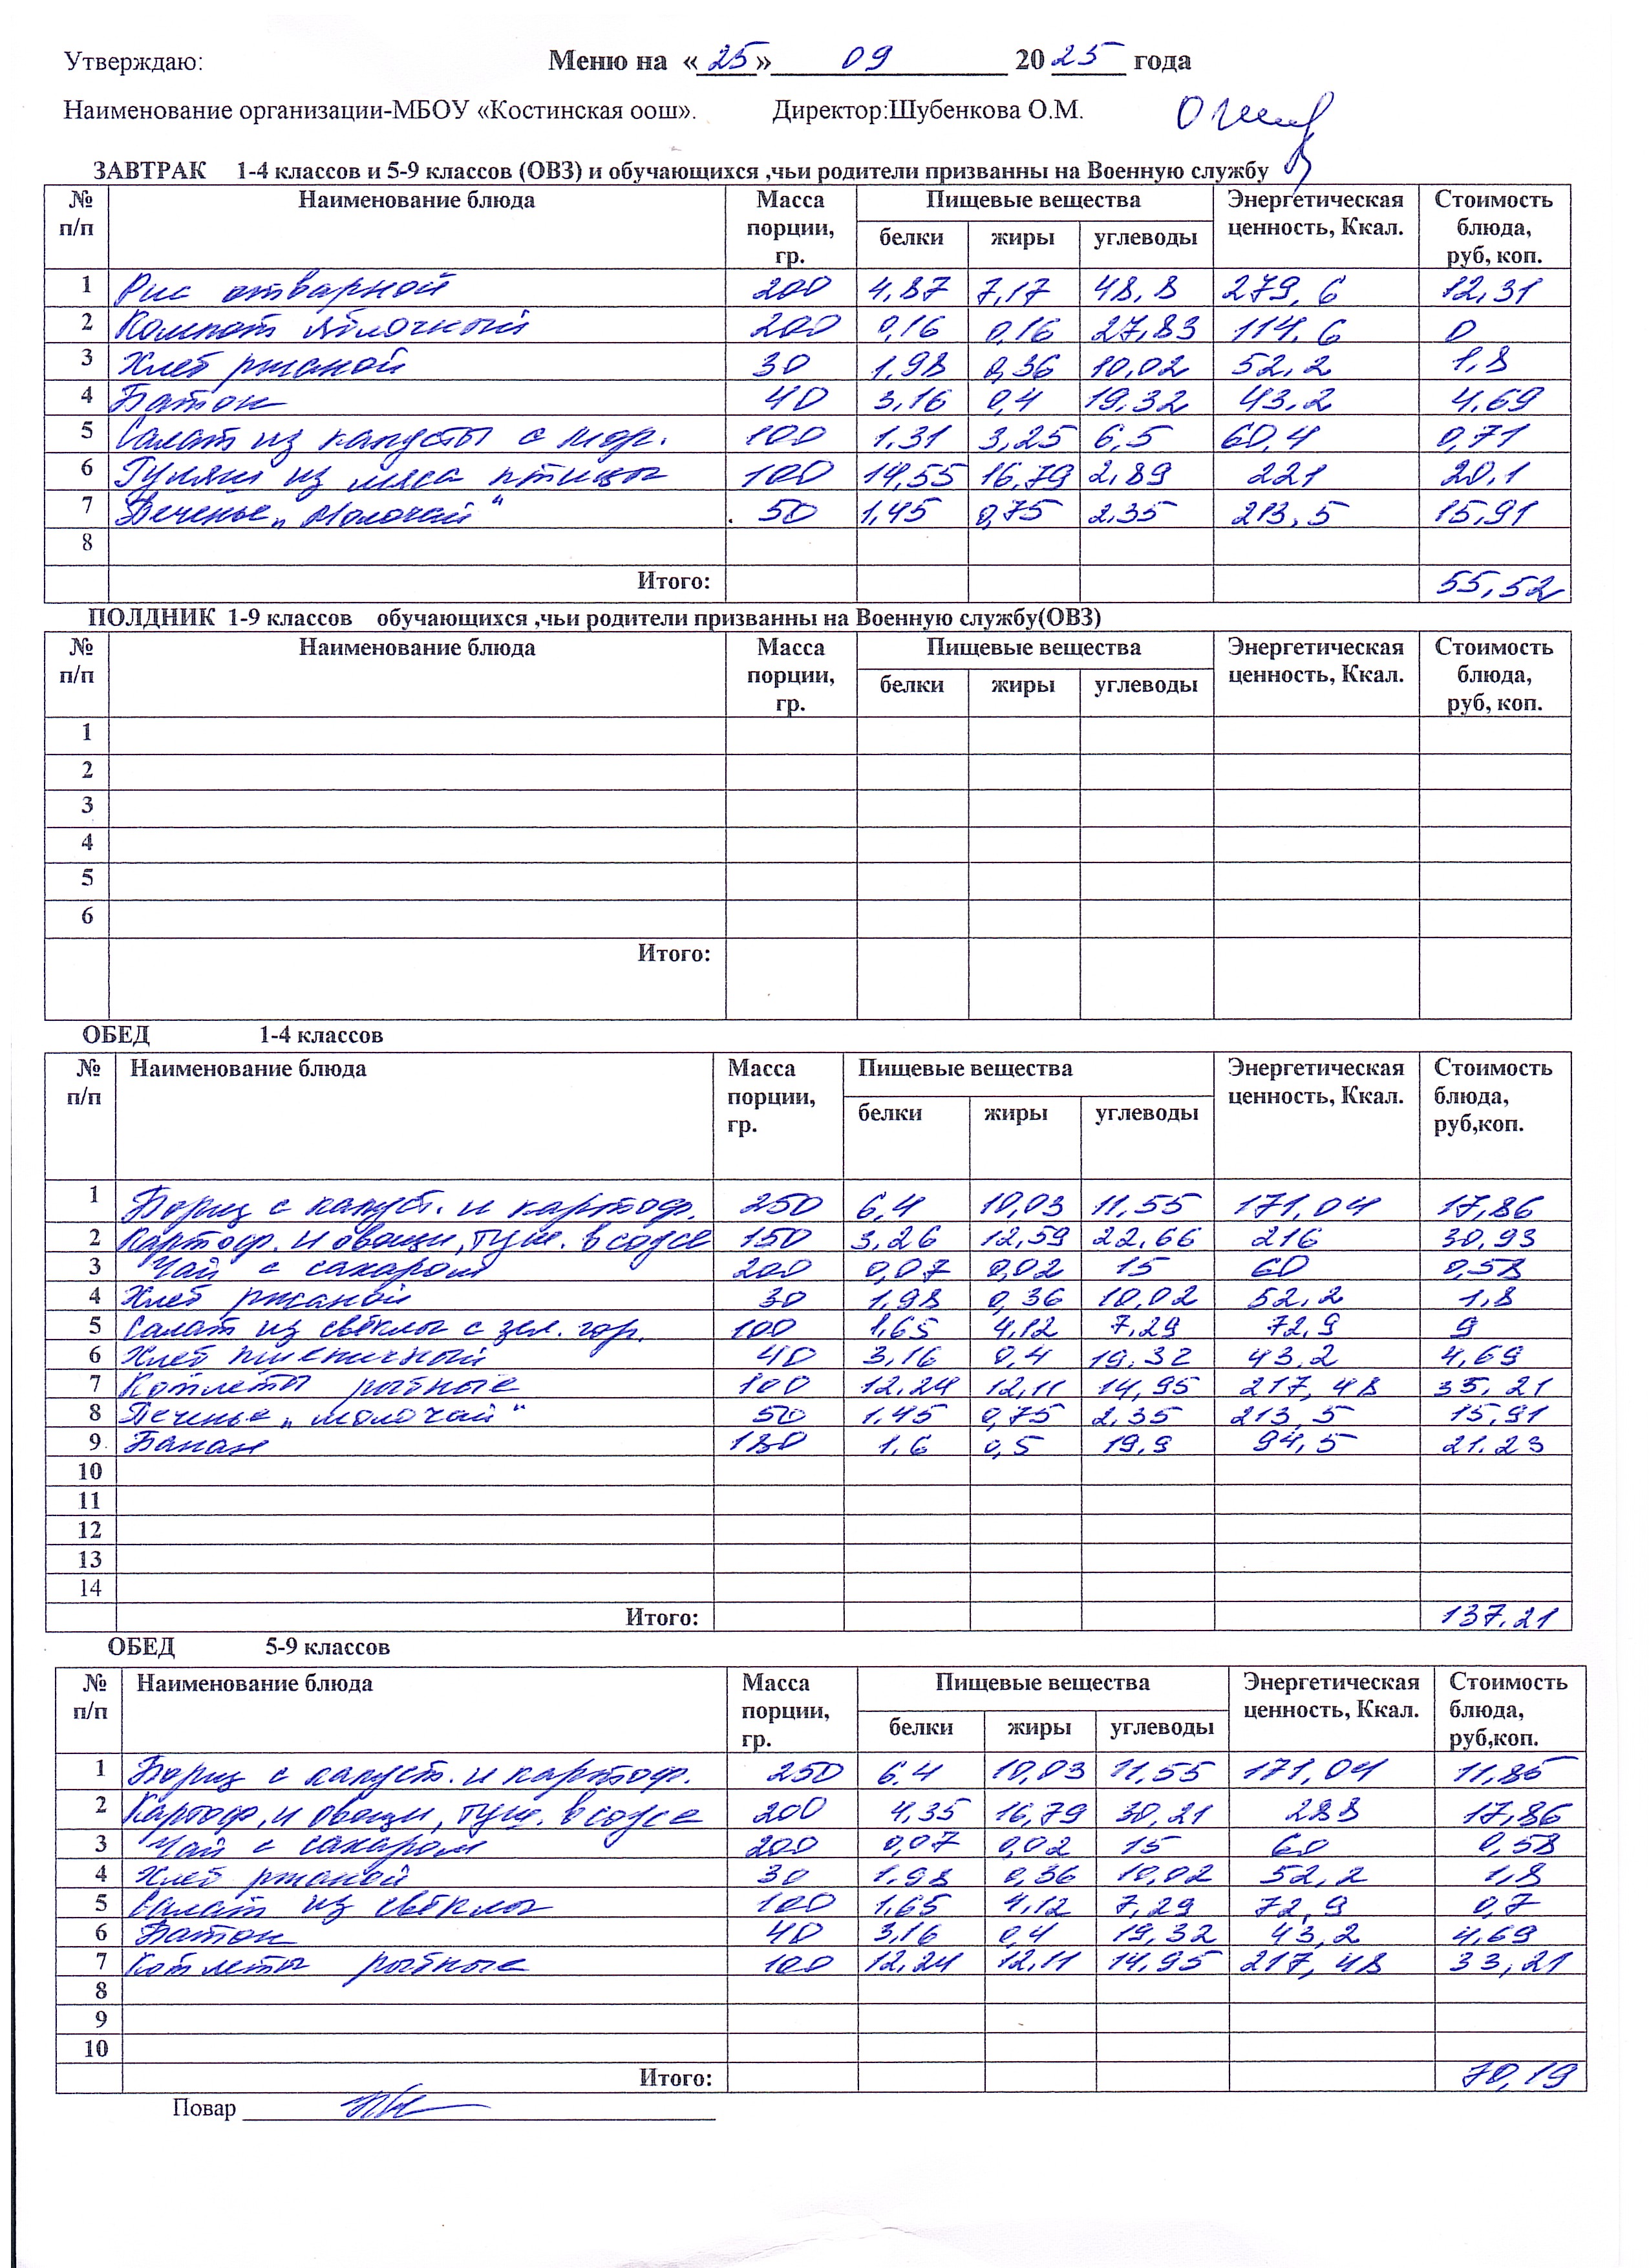 Утверждаю: Меню на «25» 09 2025 года
Наименование организации-МБОУ «Костинская оош». Директор:Шубенкова О.М.
ЗАВТРАК 1-4 классов и 5-9 классов (ОВЗ) и обучающихся ,чьи родители призванны на Военную службу
№ п/п Наименование блюда Масса порции, гр. Пищевые вещества Энергетическая ценность, Ккал. Стоимость блюда, руб, коп.
белки жиры углеводы
1 Рис отварной 200 4,87 7,17 48,8 279,6 12,31
2 Компот яблочный 200 0,16 0,16 27,83 114,6 0
3 Хлеб ржаной 30 1,98 0,36 10,02 52,2 1,8
4 Батон 40 3,16 0,4 19,32 43,2 4,69
5 Салат из капусты с мор. 100 1,31 3,25 6,5 60,4 0,71
6 Гуляш из мяса птицы 100 14,55 16,79 2,89 221 20,1
7 Печенье „Молочай“ 50 1,45 0,75 2,35 213,5 15,91
8
Итого: 55,52
ПОЛДНИК 1-9 классов обучающихся ,чьи родители призванны на Военную службу(ОВЗ)
№ п/п Наименование блюда Масса порции, гр. Пищевые вещества Энергетическая ценность, Ккал. Стоимость блюда, руб, коп.
белки жиры углеводы
1
2
3
4
5
6
Итого:
ОБЕД 1-4 классов
№ п/п Наименование блюда Масса порции, гр. Пищевые вещества Энергетическая ценность, Ккал. Стоимость блюда, руб,коп.
белки жиры углеводы
1 Борщ с капуст. и картоф. 250 6,4 10,03 11,55 171,04 17,86
2 Картоф. и овощи, туш. в соусе 150 3,26 12,59 22,66 216 30,93
3 Чай с сахаром 200 0,07 0,02 15 60 0,58
4 Хлеб ржаной 30 1,98 0,36 10,02 52,2 1,8
5 Салат из свёклы с зел. гор. 100 1,65 4,12 7,29 72,9 9
6 Хлеб пшеничный 40 3,16 0,4 19,32 43,2 4,69
7 Котлеты рыбные 100 12,24 12,11 14,95 217,48 35,21
8 Печенье „молочай“ 50 1,45 0,75 2,35 213,5 15,91
9 Банан 180 1,6 0,5 19,9 94,5 21.23
10
11
12
13
14
Итого: 137,21
ОБЕД 5-9 классов
№ п/п Наименование блюда Масса порции, гр. Пищевые вещества Энергетическая ценность, Ккал. Стоимость блюда, руб,коп.
белки жиры углеводы
1 Борщ с капуст. и картоф. 250 6.4 10,03 11,55 171,04 11,85
2 Картоф. и овощи, туш. в соусе 200 4,35 16,79 30,21 288 17,86
3 Чай с сахаром 200 0,07 0,02 15 60 0,58
4 Хлеб ржаной 30 1,98 0,36 10,02 52,2 1,8
5 Салат из свёклы 100 1,65 4,12 7,29 72,9 0,7
6 Батон 40 3,16 0,4 19,32 43,2 4,69
7 Котлеты рыбные 100 12,24 12,11 14,95 217,48 33,21
8
9
10
Итого: 70,19
Повар